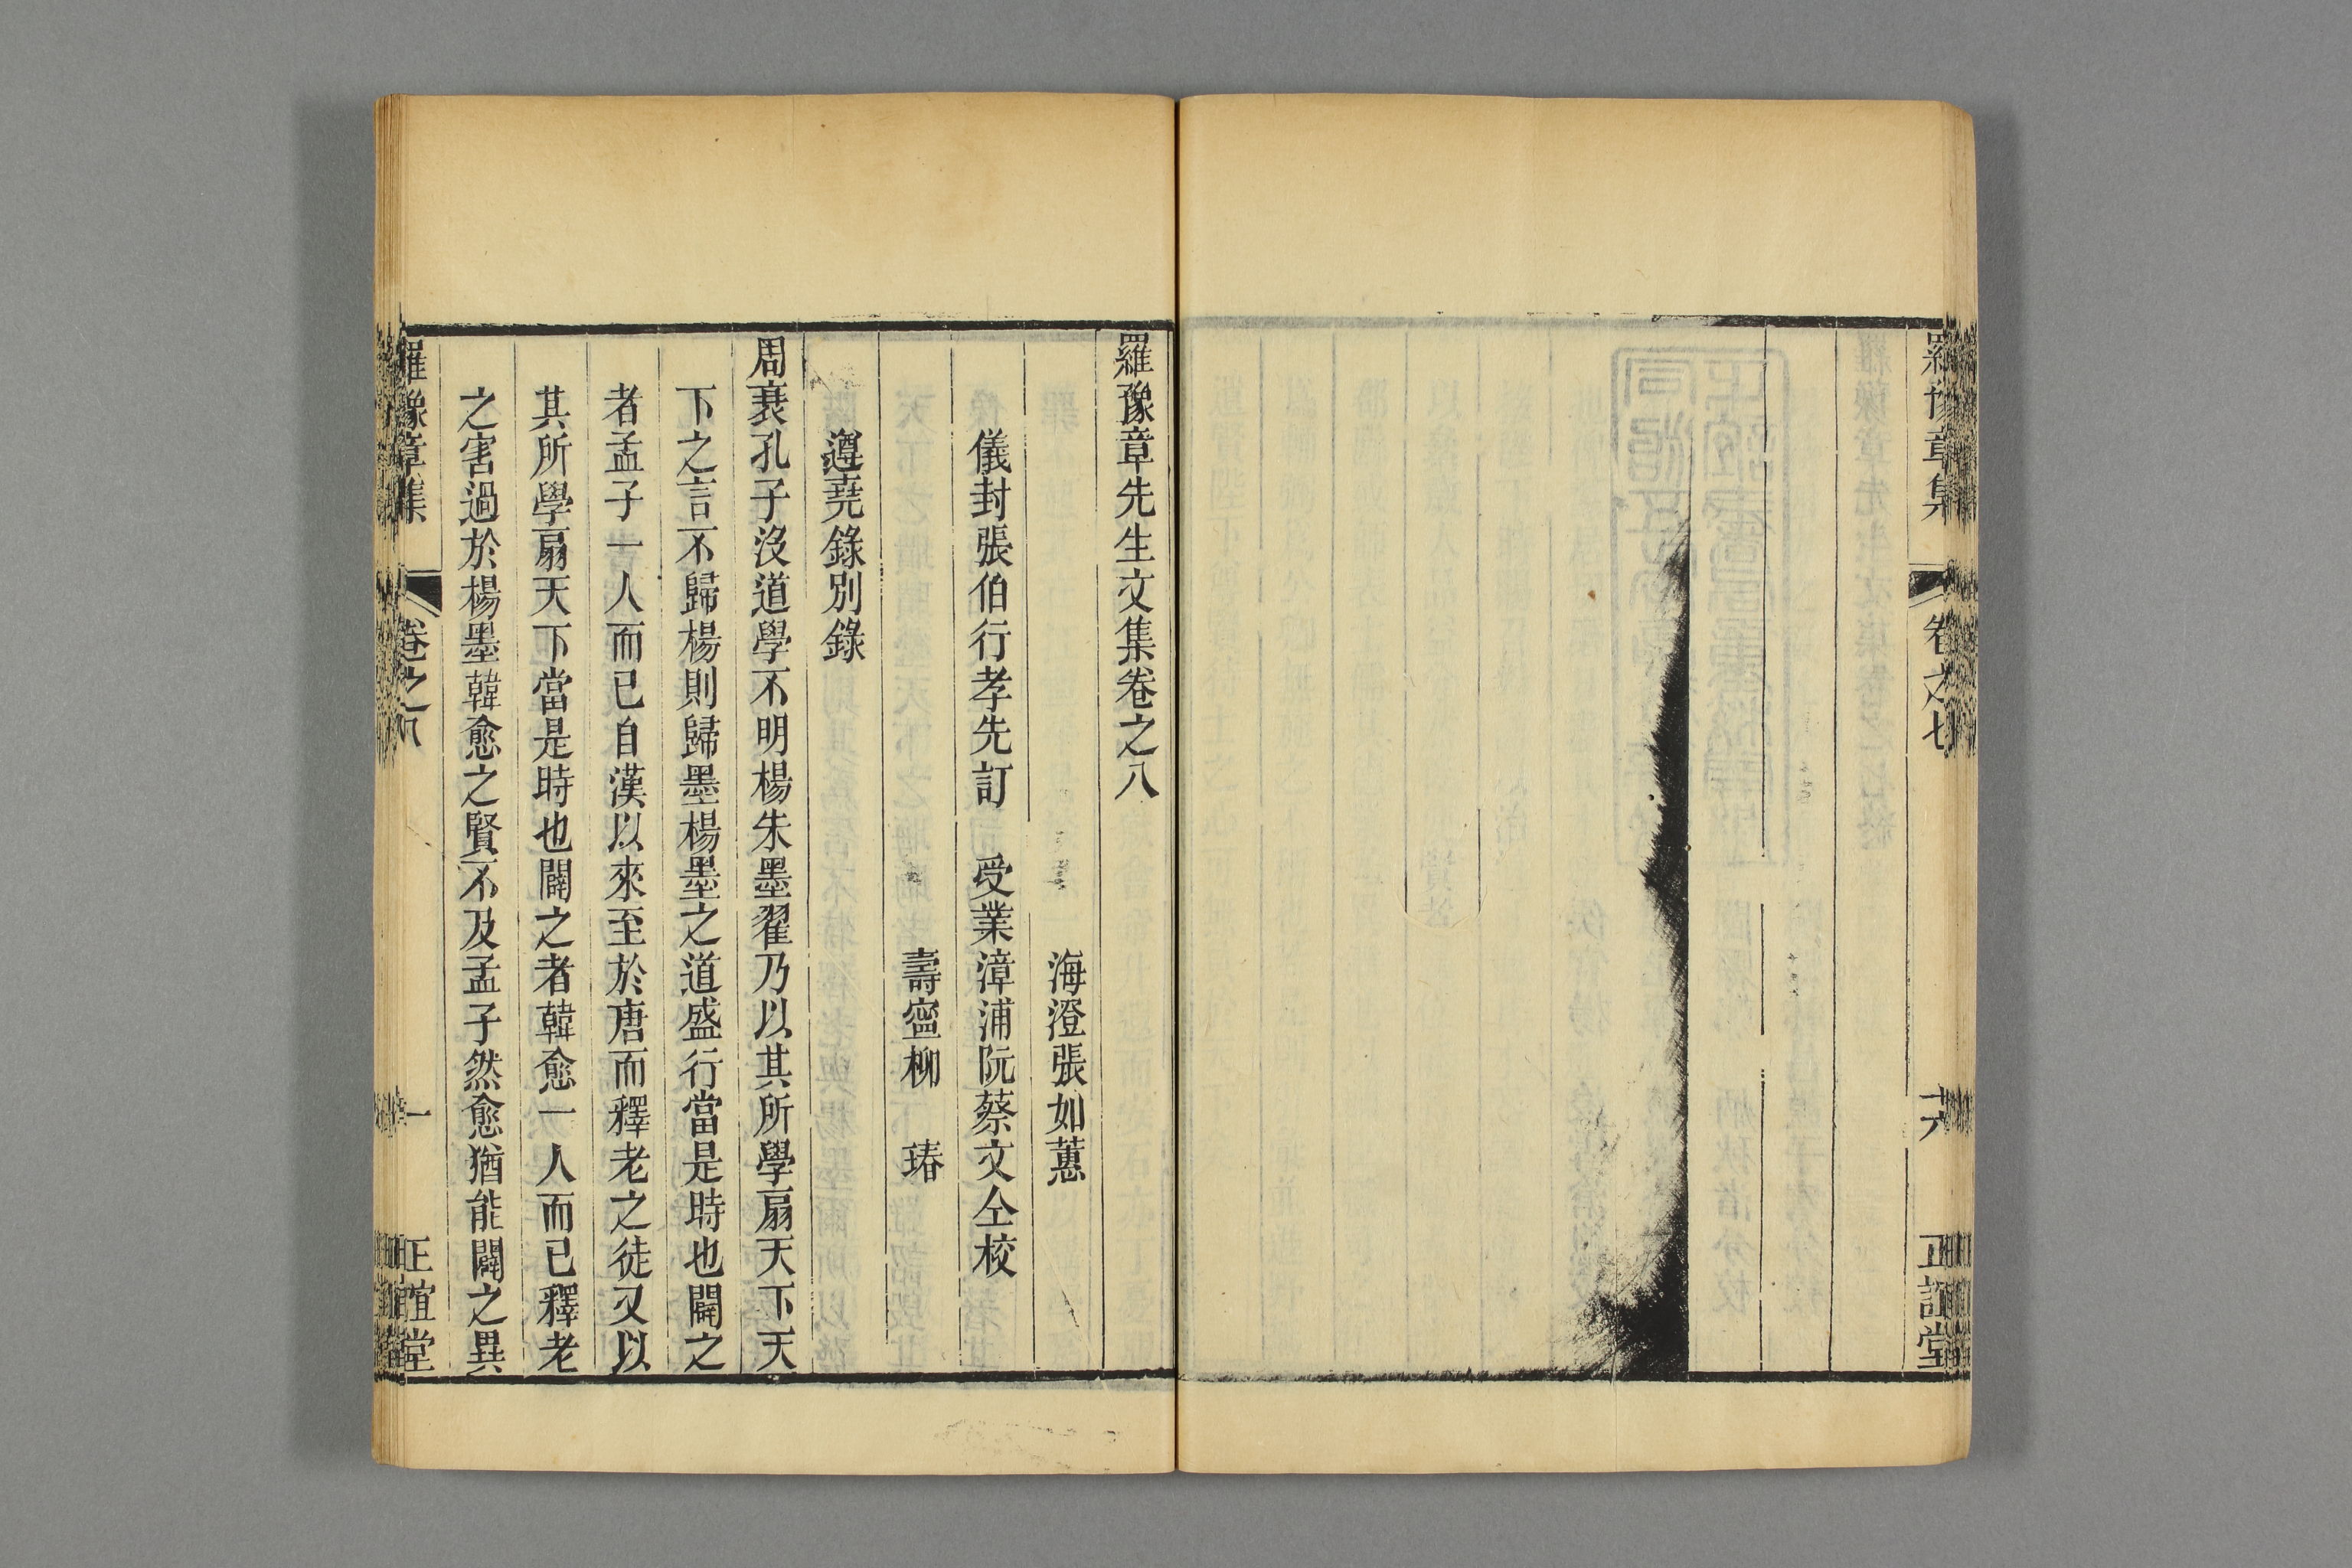 羅豫章集
卷之七
十六
正誼堂
羅豫章先生文集卷之八
海澄張如蕙
儀封張伯行孝先訂　受業漳浦阮蔡文仝校
壽寍柳　瑃
遵堯錄別錄
周衰孔子沒道學不明楊朱墨翟乃以其所學扇天下天
下之言不歸楊則歸墨楊墨之道盛行當是時也闢之
者孟子一人而已自漢以來至於唐而釋老之徒又以
其所學扇天下當是時也闢之者韓愈一人而已釋老
之害過於楊墨韓愈之賢不及孟子然愈猶能闢之異
羅豫章集
卷之八
一
正誼堂